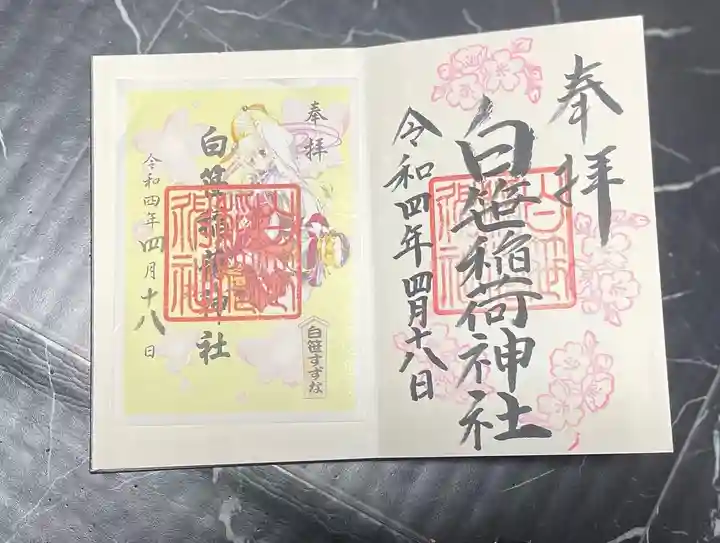 奉拝
白笹稲荷神社
令和四年四月十八日
奉拝
白笹稲荷神社
令和四年四月十八日
白笹すずな